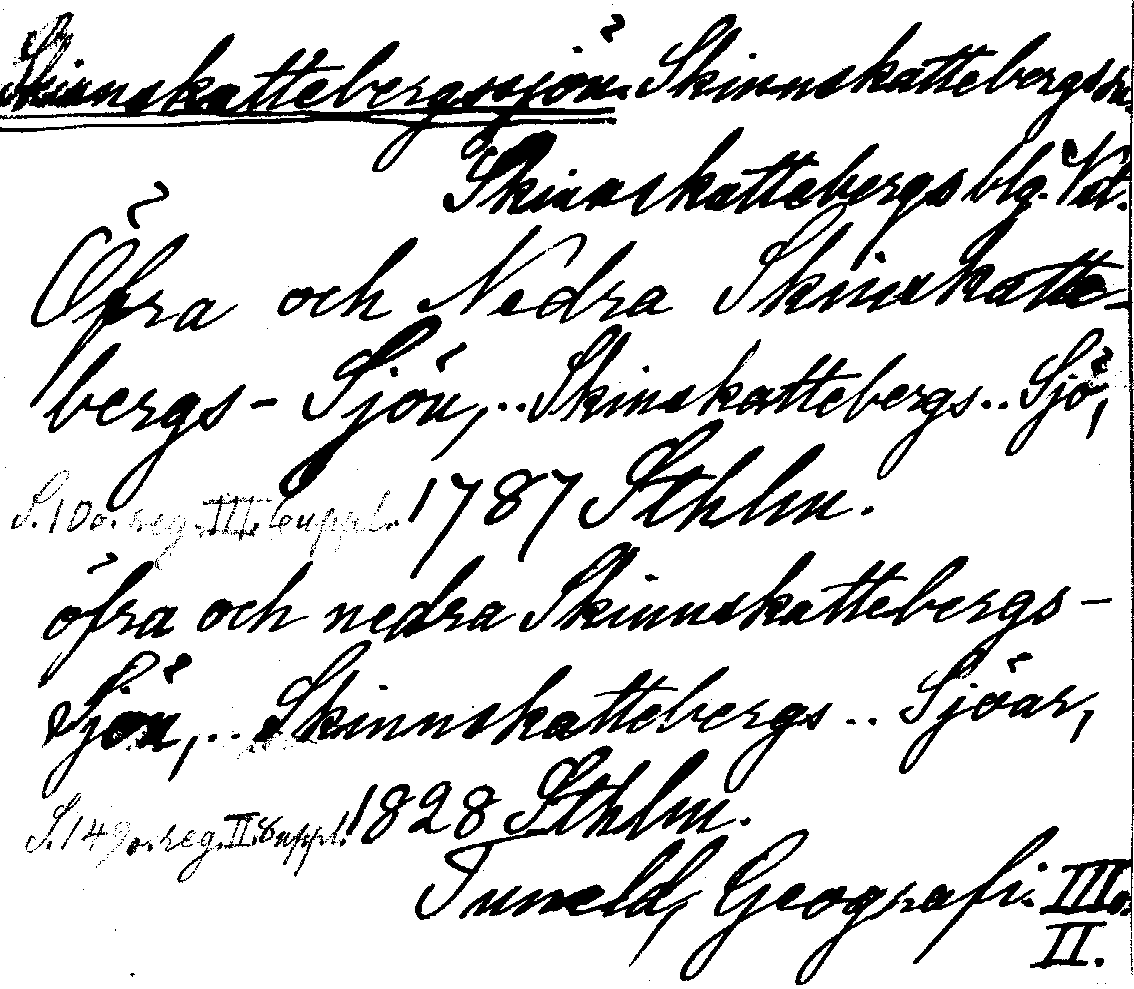 Skinnskattebergssjön. Skinnskattebergs sn.
Skinnskattebergs blg. Vstm.
Öfra och Nedra Skinskatte-
bergs-Sjön,.. Skinskattebergs.. Sjö,
S. 10 o. reg. III. Suppl. 1787 Sthlm.
öfra och nedra Skinnskattebergs-
Sjön,.. Skinnskattebergs.. Sjöar,
S. 149 o. reg. II. Suppl. 1828 Sthlm.
Tuneld, Geografi. III o.
II.